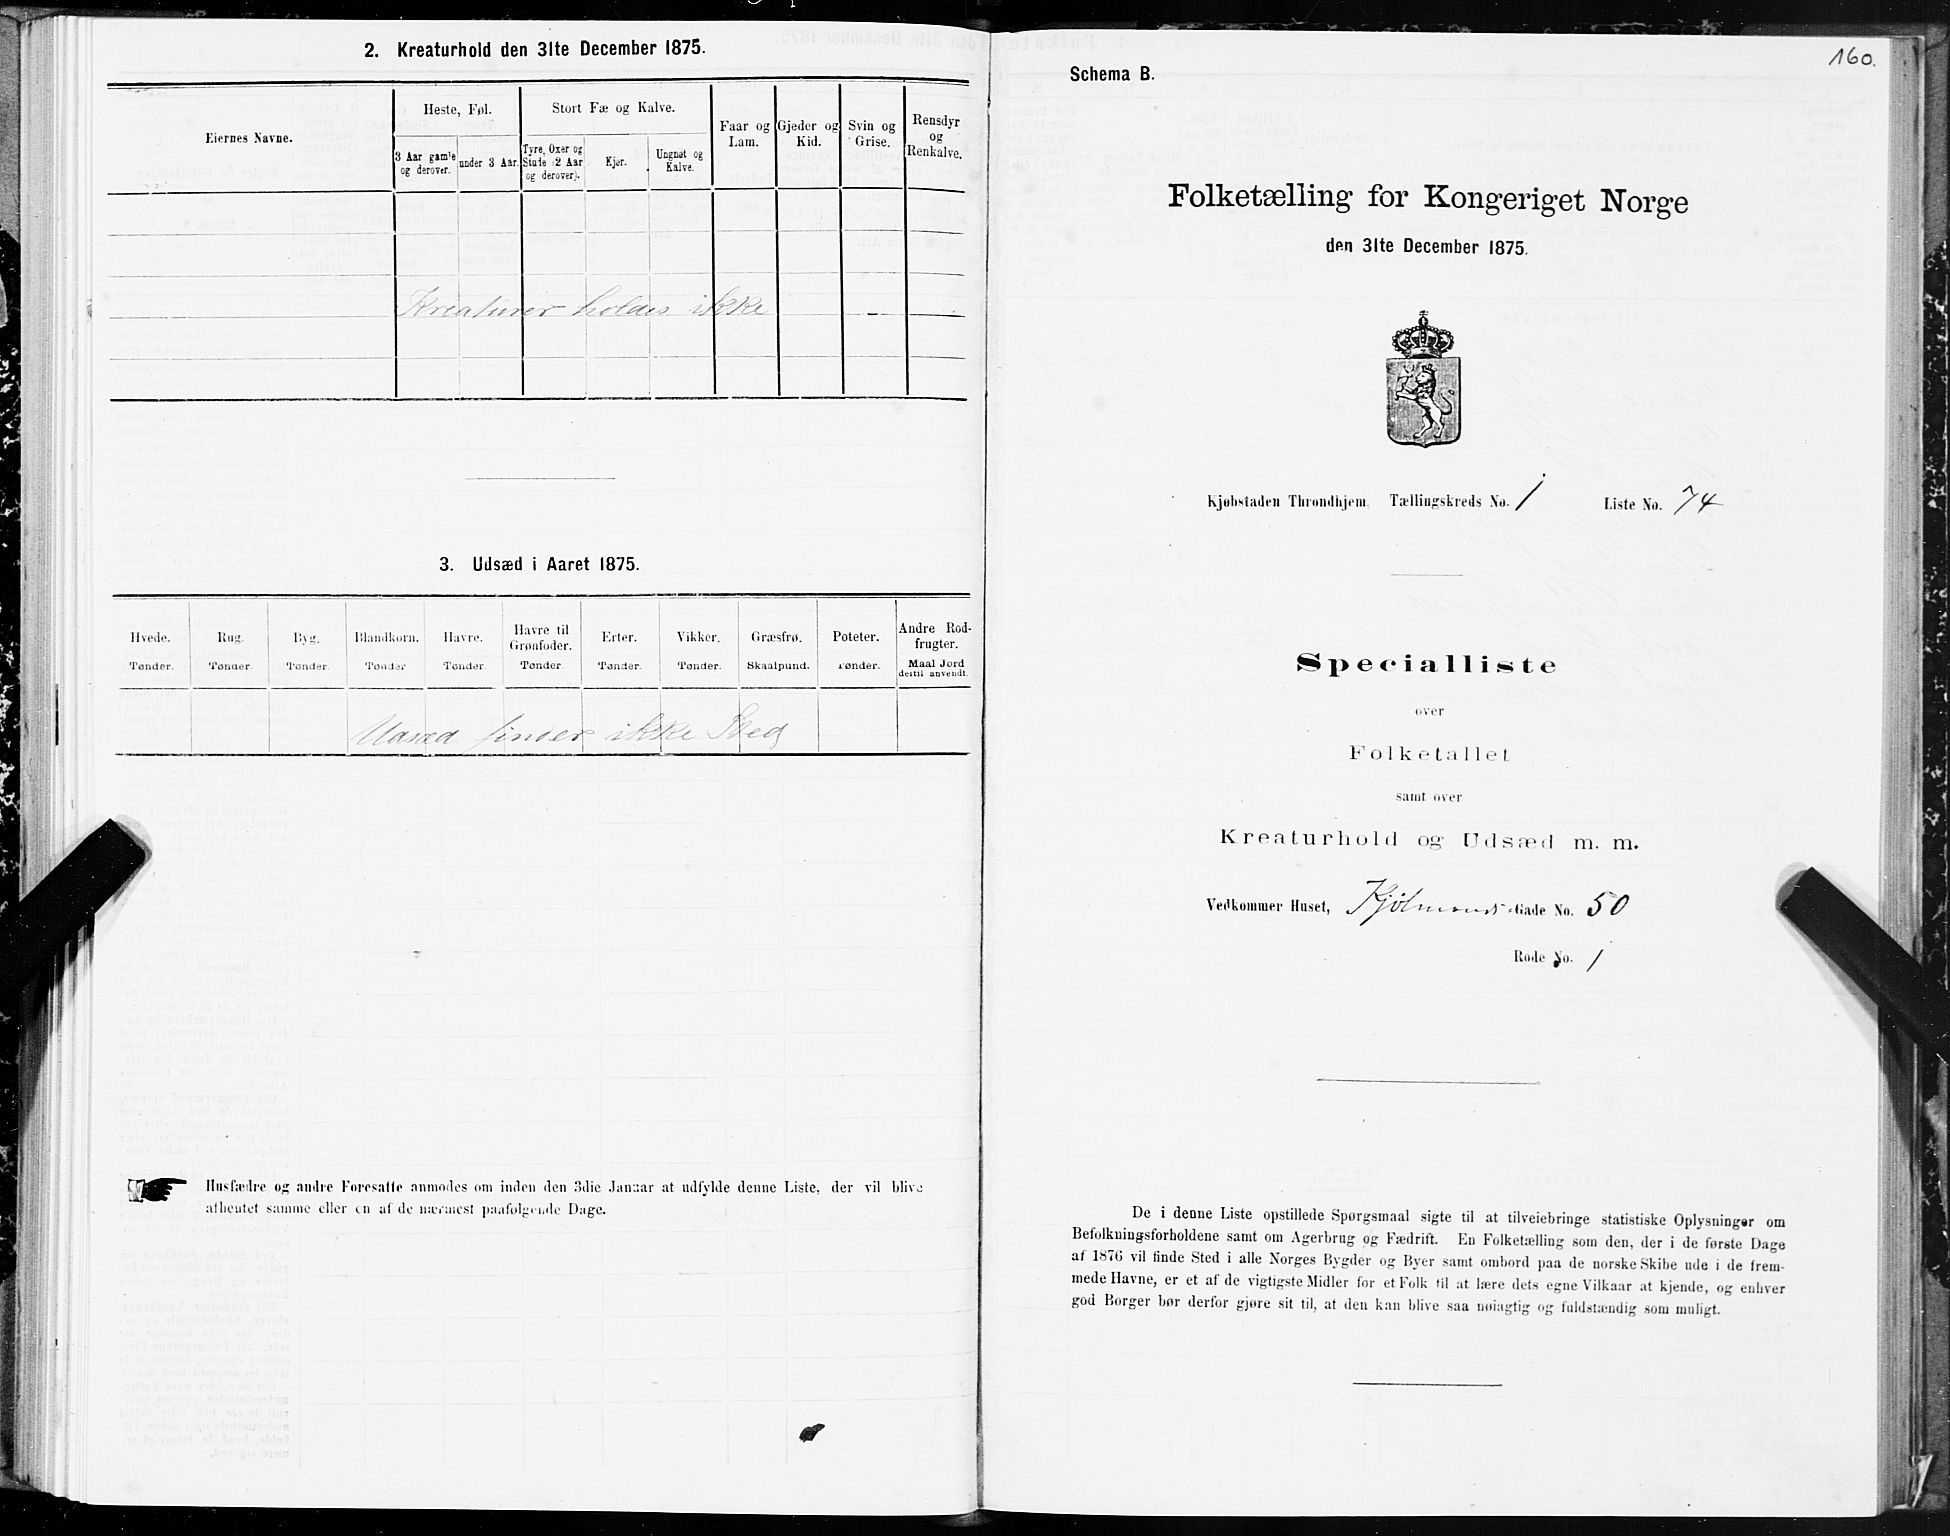 2. Kreaturhold den 31te December 1875.
Eiernes Navne.
Heste, Føl.
Stort Fæ og Kalve.
Faar og Lam.
Gjeder og Kid.
Svin og Grise.
Rensdyr og Renkalve.
3 Aar gamle og derover.
under 3 Aar.
Tyre, Oxer og Stude (2 Aar og derover).
Kjør.
Ungnøt og Kalve.
Kreaturer holdes ikke
3. Udsæd i Aaret 1875.
Hvede. Tønder.
Rug. Tønder.
Byg. Tønder.
Blandkorn. Tønder
Havre. Tønder
Havre til Grønfoder. Tønder
Erter. Tønder.
Vikker. Tønder.
Græsfrø. Skaalpund.
Poteter. Tønder.
Andre Rodfrugter. Maal Jord dertil anvendt.
Udsæd finder ikke Sted
Husfædre og andre Foresatte anmodes om inden den 3die Januar at udfylde denne Liste, der vil blive
afhentet samme eller en af de nærmest paafølgende Dage.
160.
Schema B.
Folketælling for Kongeriget Norge
den 31te December 1875.
Kjøbstaden Throndhjem. Tællingskreds No. 1 Liste No. 74
Specialliste
over
Folketallet
samt over
Kreaturhold og Udsæd m. m.
Vedkommer Huset, Kjølmands Gade No. 50
Rode No. 1
De i denne Liste opstillede Spørgsmaal sigte til at tilveiebringe statistiske Oplysninger om
Befolkningsforholdene samt om Agerbrug og Fædrift. En Folketælling som den, der i de første Dage
af 1876 vil finde Sted i alle Norges Bygder og Byer samt ombord paa de norske Skibe ude i de frem-
mede Havne, er et af de vigtigste Midler for et Folk til at lære dets egne Vilkaar at kjende, og enhver
god Borger bør derfor gjøre sit til, at den kan blive saa nøiagtig og fuldstændig som muligt.